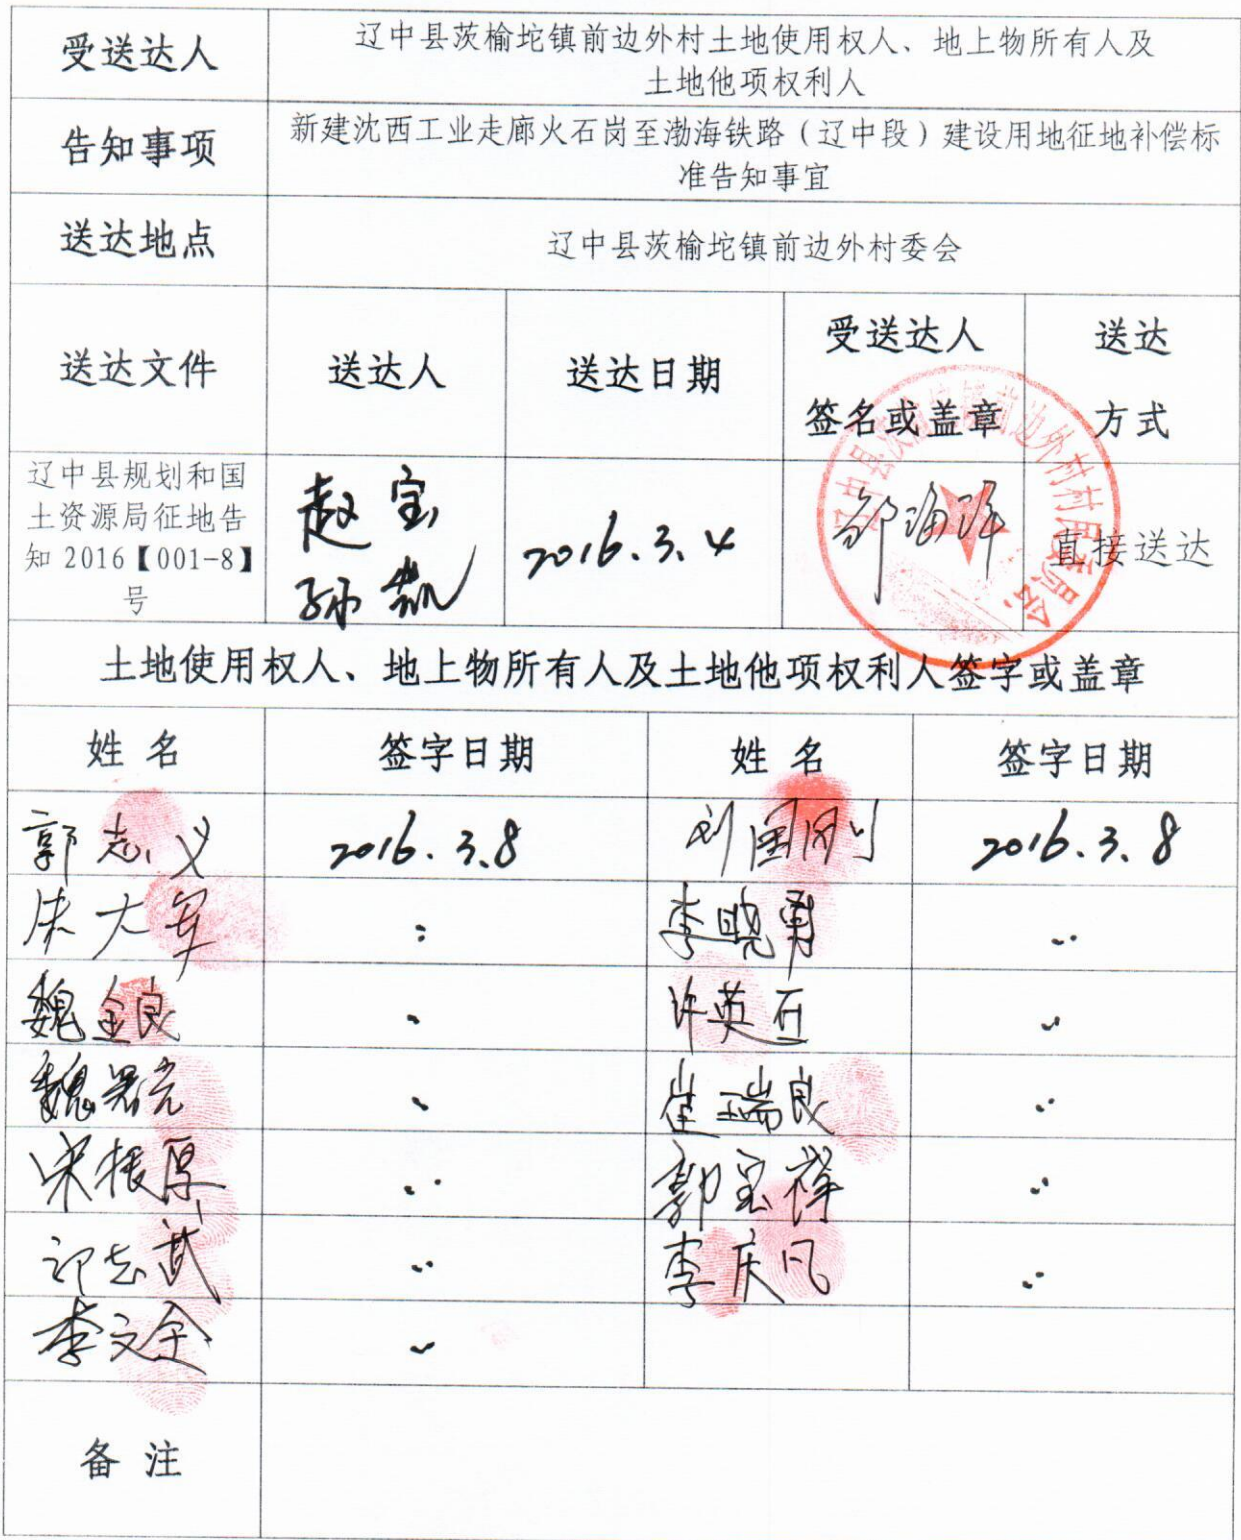 受送达人
辽中县茨榆坨镇前边外村土地使用权人、地上物所有人及
土地他项权利人
告知事项
新建沈西工业走廊火石岗至渤海铁路（辽中段）建设用地征地补偿标
准告知事宜
送达地点
辽中县茨榆坨镇前边外村委会
送达文件
送达人
送达日期
受送达人
签名或盖章
送达
方式
辽中县规划和国
土资源局征地告
知 2016【001-8】
号
赵宝
孙凯
2016.3.4
邹海洋
辽中县茨榆坨镇前边外村村民委员会
直接送达
土地使用权人、地上物所有人及土地他项权利人签字或盖章
姓 名
签字日期
姓 名
签字日期
郭志义
2016.3.8
刘国刚
2016.3.8
大军
李晓勇
魏金良
许英
魏
崔瑞良
宋振厚
郭宝祥
志武
李庆凤
李文全
备 注